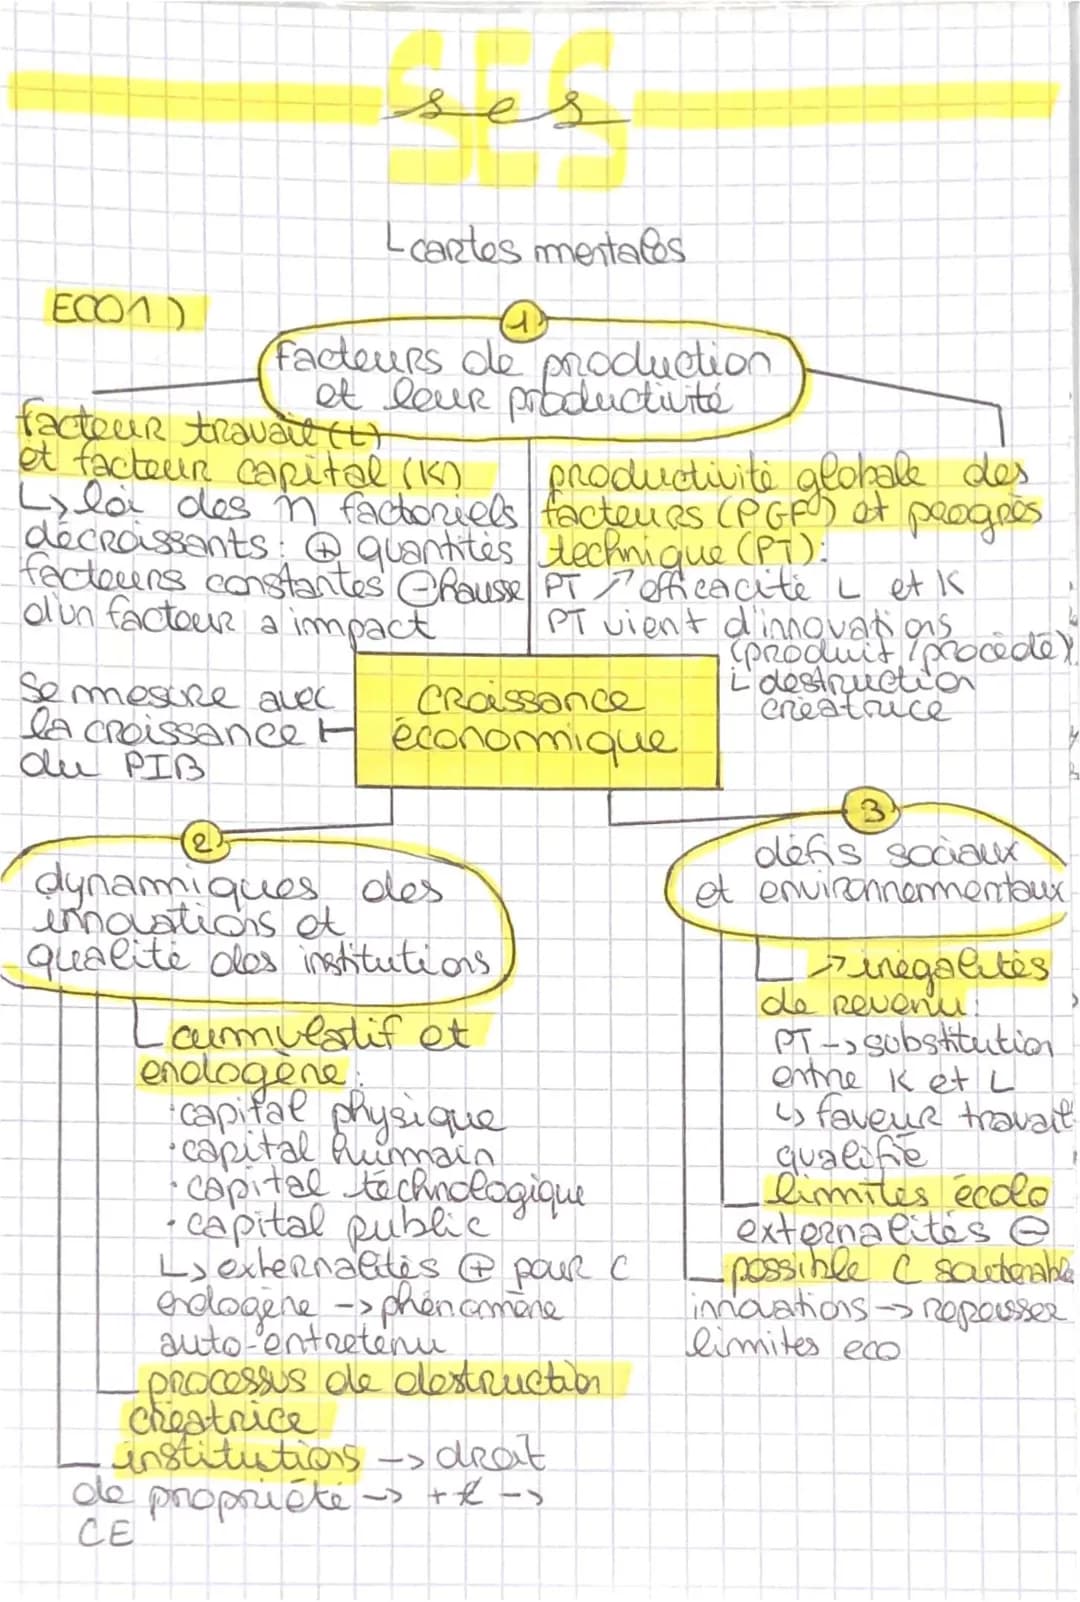 SES
ses
cartes mentales
ECO1)
1
facteurs de production
et leur productivité
facteur travail (L)
et facteur capital (K)
↳ loi des n factoriels
décroissants : ⊕ quantités
facteurs constantes ⊖ hausse
d'un facteur a impact
productivité globale des
facteurs (PGF) et progrès
technique (PT):
PT ↗ efficacité L et K
PT vient d'innovations
(produit / procédé)
↳ destruction
créatrice
Se mesure avec
la croissance
du PIB
croissance
économique
2
dynamiques des
innovations et
qualité des institutions
cumulatif et
endogène:
·capital physique
·capital humain
·capital technologique
·capital public
↳ externalités ⊕ pour C
endogène -> phénomène
auto-entretenu
processus de destruction
créatrice
institutions -> droit
de propriété -> + ->
CE
3
défis sociaux
et environnementaux
↗ inégalités
de revenu:
PT -> substitution
entre K et L
↳ faveur travail
qualifié
limites écolo
externalités ⊖
possible C soutenable
innovations -> repousser
limites eco